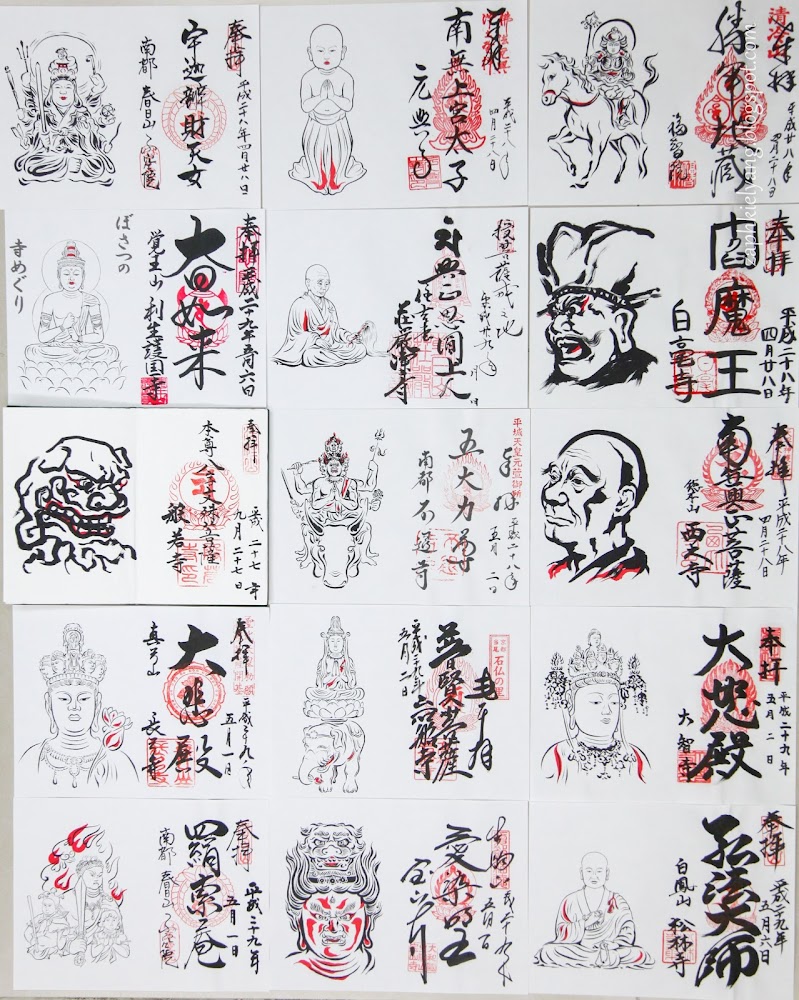 奉拝
宇迦辨財天女
平成二十八年四月廿八日
南都 春日山
奉拝
南無上宮太子
平成二十八年
四月二十八日
元興寺
奉拝
勝軍地蔵
平成廿八年
四月二十八日
福智院
ぼさつの
寺めぐり
奉拝
平成二十九年五月六日
大日如来
覚王山
利生護国寺
授菩薩戒之地
興正思圓上人
奉拝
閻魔王
平成二十八年
四月廿八日
白毫寺
奉拝
本尊 八字文殊菩薩
平成二十七年
九月二十七日
般若寺
平城天皇元萱御所
奉拝
五大力尊
平成二十八年
五月二日
南都 不退寺
奉拝
南無興正菩薩
平成二十八年
四月二十八日
西大寺
奉拝
大悲殿
平成二十九年
五月一日
真弓山 長弓寺
京都
当尾
石仏の里
奉拝
普賢菩薩
平成二十九年
五月二日
岩船寺
奉拝
大悲殿
平成二十九年
五月二日
大智寺
奉拝
羂索之菴
平成二十九年
五月一日
南都 春日山
生駒山
愛染明王
平成二十九年
宝山寺
奉拝
弘法大師
平成二十九年
五月六日
白鳳山 松林寺
zaphkielyang.blogspot.com